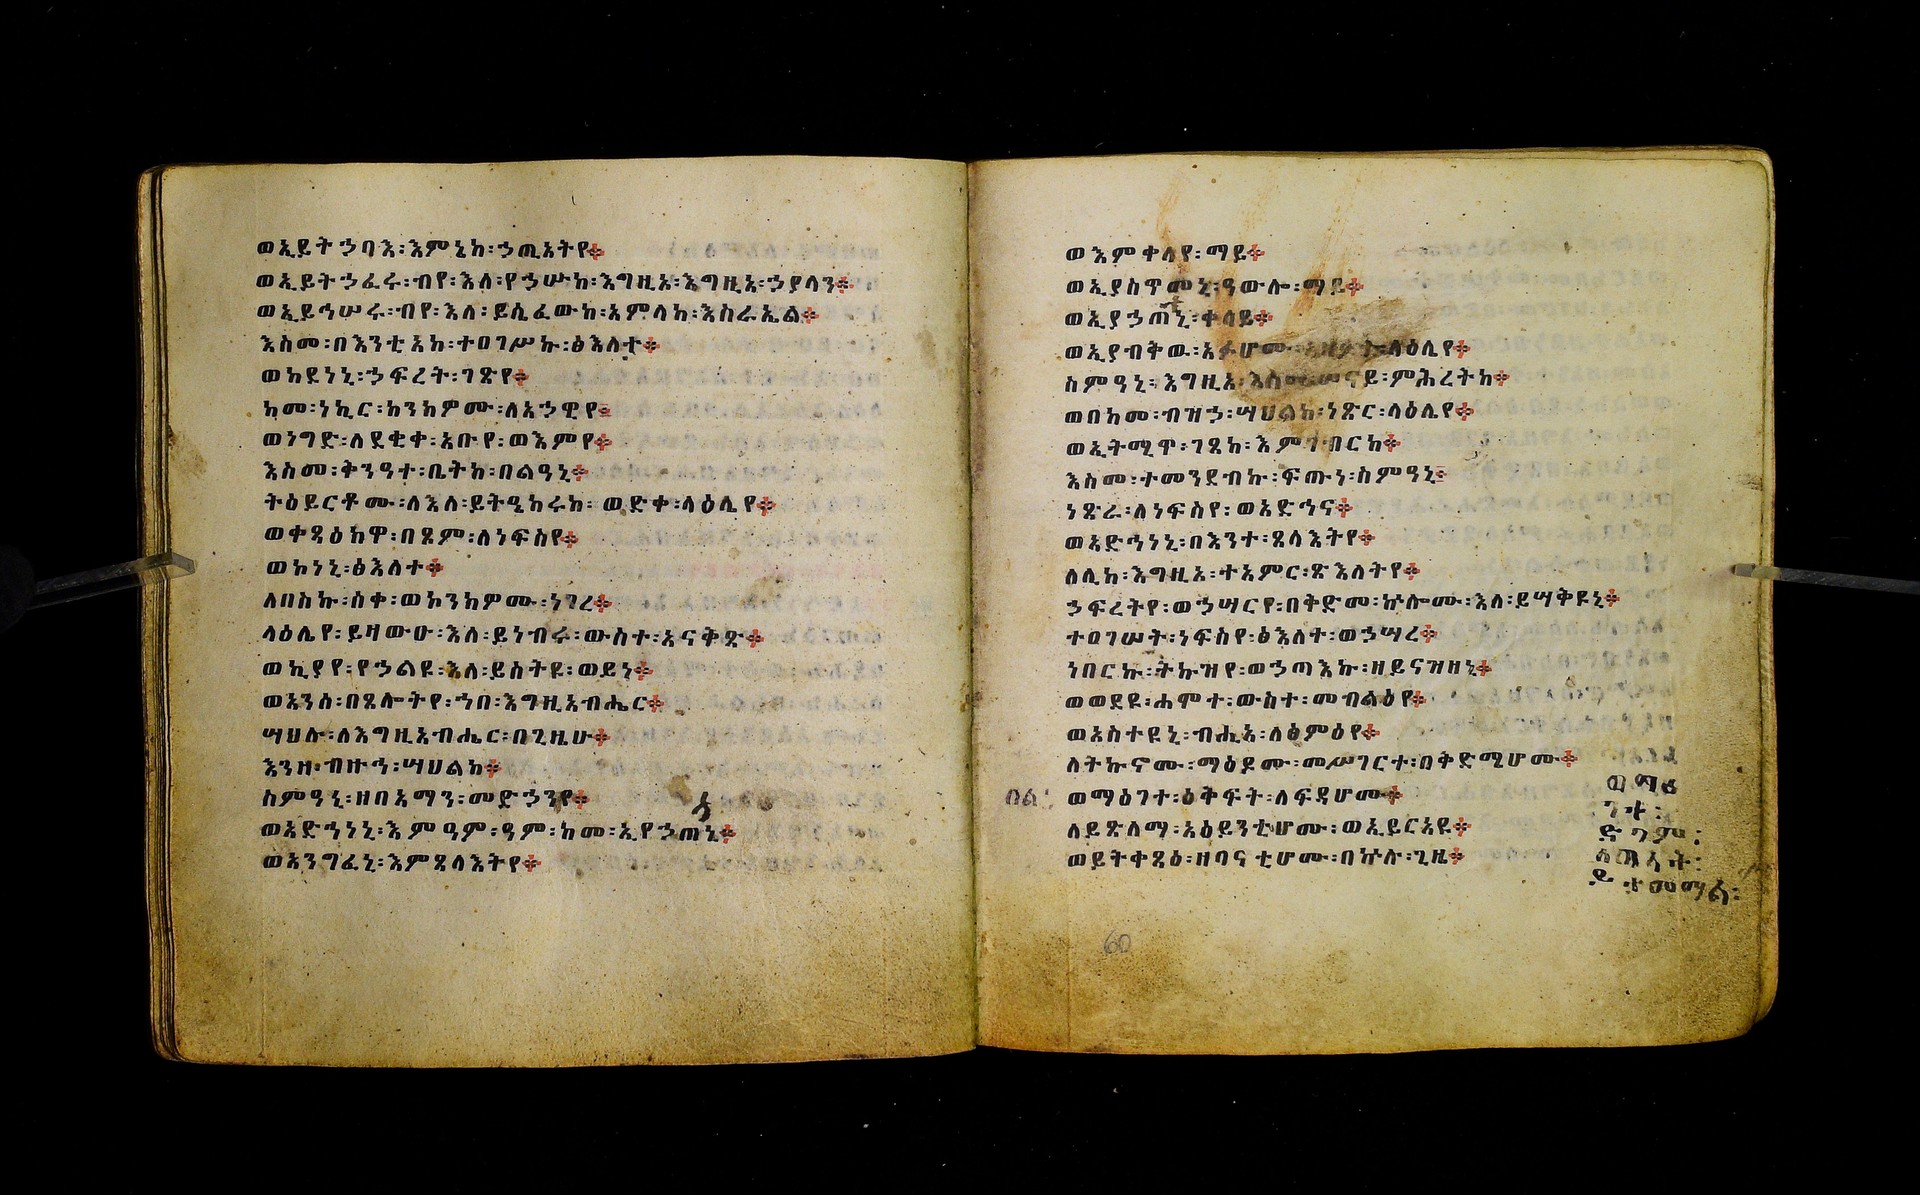 ወኢይትኃባእ፡እምኔከ፡ኃጢአትየ።
ወኢይትኃፈሩ፡ብየ፡እለ፡የኃሡከ፡እግዚአ፡እግዚአ፡ኃያላን።
ወኢይኅሠሩ፡ብየ፡እለ፡ይሴፈውከ፡አምላከ፡እስራኤል።
እስመ፡በእንቲአከ፡ተዐገሥኩ፡ፅእለተ።
ወከደነኒ፡ኃፍረት፡ገጽየ።
ከመ፡ነኪር፡ከንክዎሙ፡ለአኃዊየ።
ወነግድ፡ለደቂቀ፡አቡየ፡ወእምየ።
እስመ፡ቅንዓተ፡ቤትከ፡በልዓኒ።
ትዕይርቶሙ፡ለእለ፡ይትዔከሩከ፡ወድቀ፡ላዕሌየ።
ወቀጻዕክዋ፡በጾም፡ለነፍስየ።
ወኮነኒ፡ፅእለተ።
ለበስኩ፡ሰቀ፡ወኮንክዎሙ፡ነገረ።
ላዕሌየ፡ይዛውዑ፡እለ፡ይነብሩ፡ውስተ፡አናቅጽ።
ወኪያየ፡የኃልዩ፡እለ፡ይስትዩ፡ወይነ።
ወአንሰ፡በጸሎትየ፡ኀበ፡እግዚአብሔር።
ሣህሉ፡ለእግዚአብሔር፡በጊዜሁ።
እንዘ፡ብዙኅ፡ሣህልከ።
ስምዓኒ፡ዘበአማን፡መድኃንየ።
ወአድኅነኒ፡እምዓም፡ዓም፡ከመ፡ኢየኃጠኒ።
ወአንግፈኒ፡እምጸላእትየ።
ወእምቀላየ፡ማይ።
ወኢያስጥመኒ፡ዓውሎ፡ማይ።
ወኢያኃጠኒ፡ቀላይ።
ወኢያብቅዉ፡አፉሆሙ፡አዘቃት፡ላዕሌየ።
ስምዓኒ፡እግዚአ፡እስመ፡ሠናይ፡ምሕረትከ።
ወበከመ፡ብዝኃ፡ሣህልከ፡ነጽር፡ላዕሌየ።
ወኢትሚጥ፡ገጸከ፡እምገብርከ።
እስመ፡ተመንደብኩ፡ፍጡነ፡ስምዓኒ።
ነጽራ፡ለነፍስየ፡ወአድኅና።
ወአድኅነኒ፡በእንተ፡ጸላእትየ።
ለሊከ፡እግዚአ፡ተአምር፡ጽእለትየ።
ኃፍረትየ፡ወኃሣርየ፡በቅድመ፡ኵሎሙ፡እለ፡ይሣቅዩኒ።
ተዐገሠት፡ነፍስየ፡ፅእለት፡ወኃሣረ።
ነበርኩ፡ትኩዝየ፡ወኃጣእኩ፡ዘይናዝዘኒ።
ወወደዩ፡ሐሞተ፡ውስተ፡መብልዕየ።
ወአስተዩኒ፡ብሒአ፡ለፅምዕየ።
ለትኩኖሙ፡ማዕዶሙ፡መሥገርተ፡በቅድሜሆሙ።
በል፡
ወማዕገተ፡ዕቅፍት፡ለፍዳሆሙ።
ለይጽለማ፡አዕይንቲሆሙ፡ወኢይርአዩ።
ወይትቀጻዕ፡ዘባናቲሆሙ፡በኵሉ፡ጊዜ።
ወማዕ
ገተ፡
ድግም፡
ይተመማል፡
60